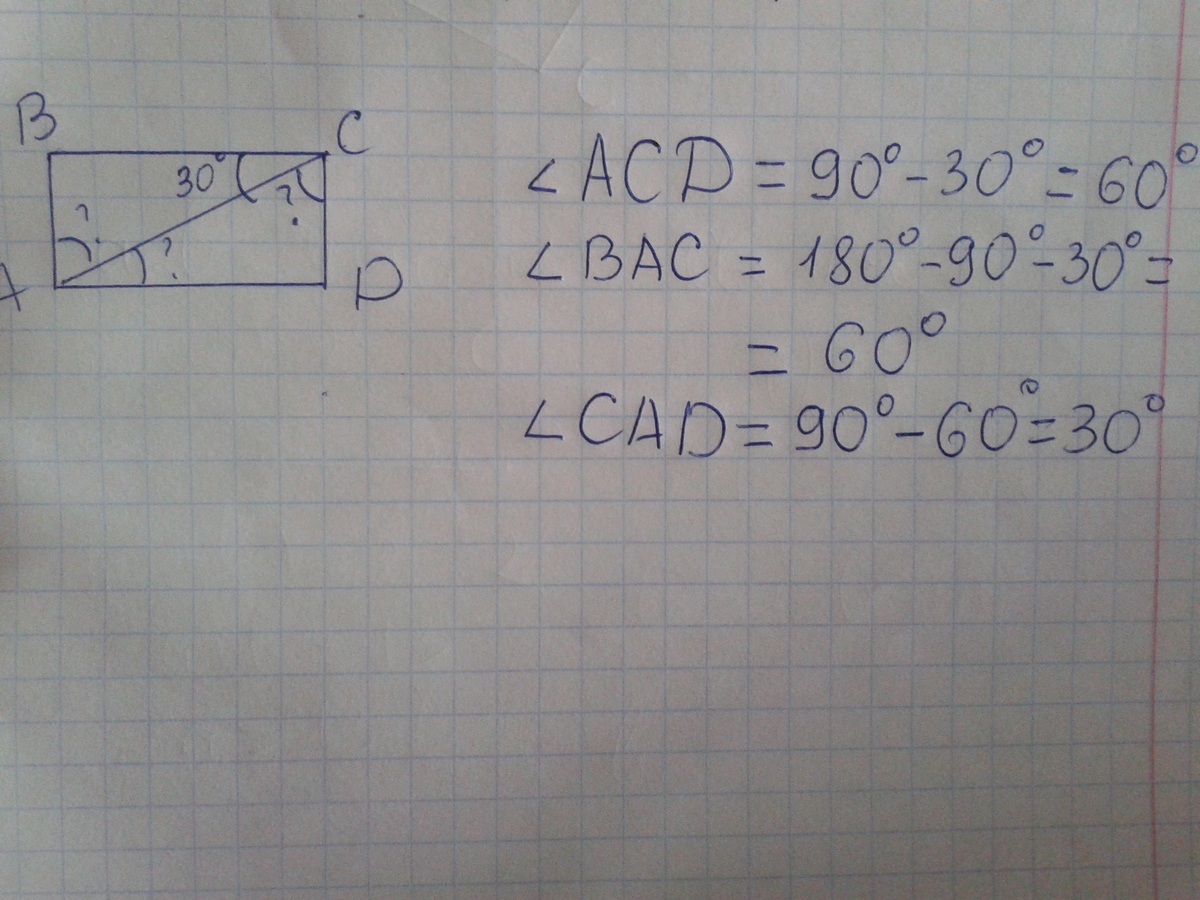 B C
30° ?
? ?
A D
∠ACD = 90° - 30° = 60°
∠BAC = 180° - 90° - 30° =
= 60°
∠CAD = 90° - 60° = 30°